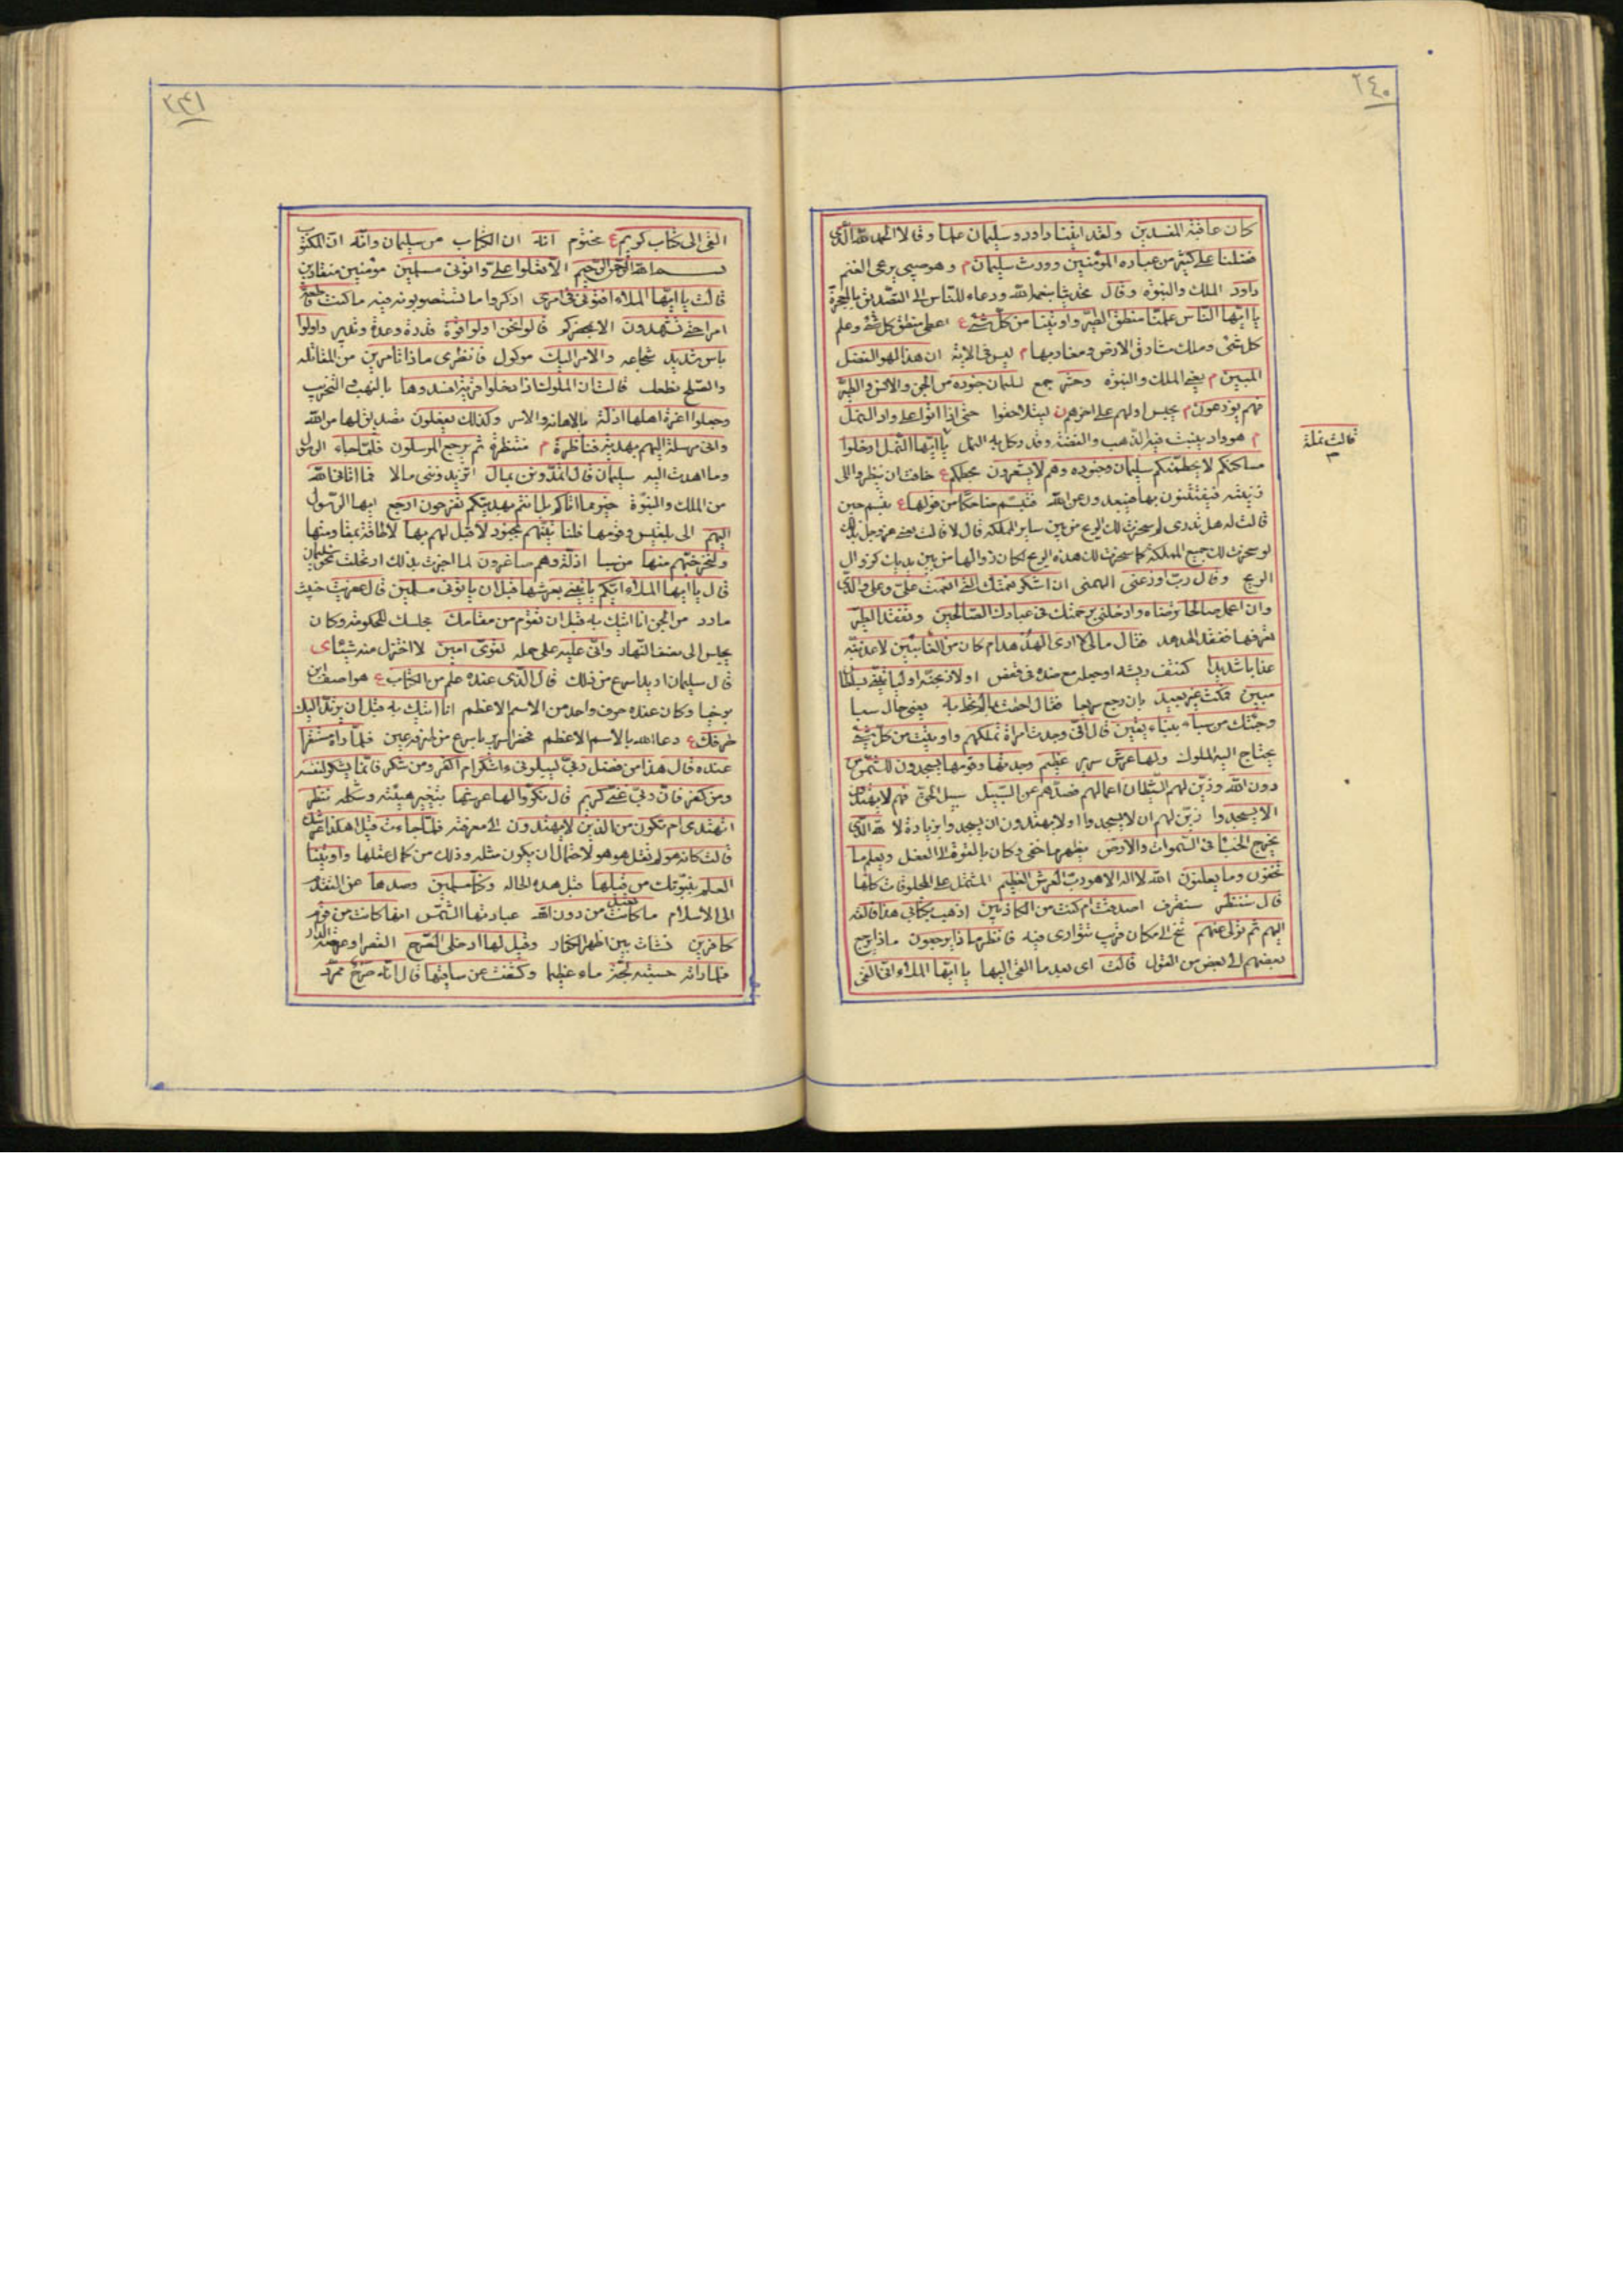 ٢٤٠
كان عاقبة المفسدين ولقد اتينا داود وسليمان علما وقالا الحمد لله الذى
فضلنا على كثير من عباده المؤمنين وورث سليمان م وهو صبى يرعى الغنم
داود الملك والنبوّه وقال تحديثا بنعم الله ودعاء للناس الى التصديق بالمعجزة
يا ايّها الناس علمنا منطق الطير واوتينا من كلّ شئ ع اعطى منطق كل شئ وعلم
كل شئ وملك مشارق الارض ومغاربها م ليس فى الاية ان هذا لهو الفضل
المبين م يعنى الملك والنبوّه وحشر جمع لسليمان جنوده من الجن والانس والطير
فهم يوزعون م يحبس اولهم على اخرهم لينلاحقوا حتى اذا اتوا على واد النمل
م هو واد ينبت فيه الذهب والفضة وقد وكل به النمل يا ايّها النمل ادخلوا
قالت نملة
مساكنكم لا يحطمنكم سليمان وجنوده وهم لا يشعرون بحطمكم ع خافت ان ينظروا الى
زينته فيفتتنون بها فيبعدون عن الله فتبسّم ضاحكا من قولها ع تبسم حين
قالت له هل تدرى لم سخرت لك الريح من بين ساير المملكه قال لا قالت يعنى عز وجل بذلك
لو سخرت لك جميع المملكة كما سخرت لك هذه الريح لكان زوالها من بين يديك كزوال
الريح وقال ربّ اوزعنى الهمنى ان اشكر نعمتك التى انعمت علىّ وعلى والدىّ
وان اعمل صالحا ترضاه وادخلنى برحمتك فى عبادك الصالحين وتفقد الطير
تعرفها ففقد الهدهد فقال مالى لا ارى الهدهد ام كان من الغائبين لاعذبنّه
عذابا شديدا كنتف ريشه او جعله مع ضده فى قفص او لاذبحنّه او ليأتينّى بسلطان
مبين فمكث غير بعيد بان رجع سريعا فقال احطت بما لم تحط به يعنى حال سبا
وجئتك من سباء بنباء يقين قال انّى وجدت امراة تملكهم واوتيت من كل شئ
يحتاج اليه الملوك ولها عرش سرير عظيم وجدتها وقومها يسجدون للشمس من
دون الله وزيّن لهم الشيطان اعمالهم فصدّهم عن السّبيل سبيل الحق فهم لا يهتدون
الا يسجدوا زين لهم ان لا يسجدوا او لا يهتدون ان يسجدوا بزيادة لا لله الذى
يخرج الخبء فى السّموات والارض يظهر ما خفى وكان بالقوة الى الفعل ويعلم ما
تخفون وما يعلنون الله لا اله الا هو ربّ العرش العظيم المشتمل على المخلوقات كلها
قال سننظر سنعرف اصدقت ام كنت من الكاذبين اذهب بكتابى هذا فالقه
اليهم ثم تولّ عنهم تنحّ الى مكان قريب تتوارى فيه فانظر ماذا يرجعون ماذا يرجع
بعضهم الى بعض من القول قالت اى بعد ما القى اليها يا ايّها الملاء انى القى
٢٤١
القى الى كتاب كريم ع مختوم انه ان الكتاب من سليمان وانّه ان المكتوب
بسم الله الرحمن الرحيم الّا تعلوا علىّ واتونى مسلمين مؤمنين منقادين
قالت يا ايّها الملاء افتونى فى امرى اذكروا ما تستصوبونه فيه ما كنت قاطعة
امرا حتى تشهدون الا بمحضركم قالوا نحن اولوا قوة قدرة وعدة ونفير واولوا
باس شديد شجاعه والامر اليك موكول فانظرى ماذا تامرين من المقاتله
والصّلح نطعك قالت ان الملوك اذا دخلوا قرية افسدوها بالنهب والتخريب
وجعلوا اعزة اهلها اذلّة بالاهانة والاسر وكذلك يفعلون تصديق لها من الله
وانى مرسلة اليهم بهديّة فناظرة م منتظرة بم يرجع المرسلون فلمّا جاء الرسول
وما اهدت اليه سليمان قال اتمدّونن بمال اتزيدوننى مالا فما اتانى الله
من الملك والنبوّة خير مما اتاكم بل انتم بهديّتكم تفرحون ارجع ايها الرّسول
اليهم الى بلقيس وقومها فلنأتينّهم بجنود لا قبل لهم بها لا طاقة بمقاومتها
ولنخرجنّهم منها من سبا اذلّة وهم صاغرون لما اخبرت بذلك ارتحلت نحو سليمان
قال يا ايها الملاء ايّكم ياتينى بعرشها قبل ان ياتونى مسلمين قال عفريت خبيث
مارد من الجن انا اتيك به قبل ان تقوم من مقامك مجلسك للحكومة وكان
يجلس الى نصف النّهار وانّى عليه على حمله لقوىّ امين لا اختزل منه شيئا ى
قال سليمان اريد اسرع من ذلك قال الّذى عنده علم من الكتاب ع هو اصف بن
برخيا وكان عنده حرف واحد من الاسم الاعظم انا اتيك به قبل ان يرتدّ اليك
طرفك ع دعا الله بالاسم الاعظم فحضر السرير باسرع من طرفة عين فلمّا راه مستقرا
عنده قال هذا من فضل ربّى ليبلونى ءاشكر ام اكفر ومن شكر فانّما يشكر لنفسه
ومن كفر فان ربّى غنىّ كريم قال نكّروا لها عرشها بتغير هيئته وشكله ننظر
اتهتدى ام تكون من الذين لا يهتدون الى معرفته فلمّا جاءت قيل اهكذا عرشك
قالت كانه هو لم تقل هو هو لاحتمال ان يكون مثله وذلك من كمال عقلها واوتينا
العلم بنبوّتك من قبلها قبل هذه الحاله وكنّا مسلمين وصدها عن التقدّم
الى الاسلام ما كانت تعبد من دون الله عبادتها الشمس انها كانت من قوم
كافرين نشات بين اظهر الكفار وقيل لها ادخلى الصّرح القصر او عرصة الدار
فلما راته حسبته لجّة ماء عظيما وكشفت عن ساقيها قال انّه صرح ممرّد